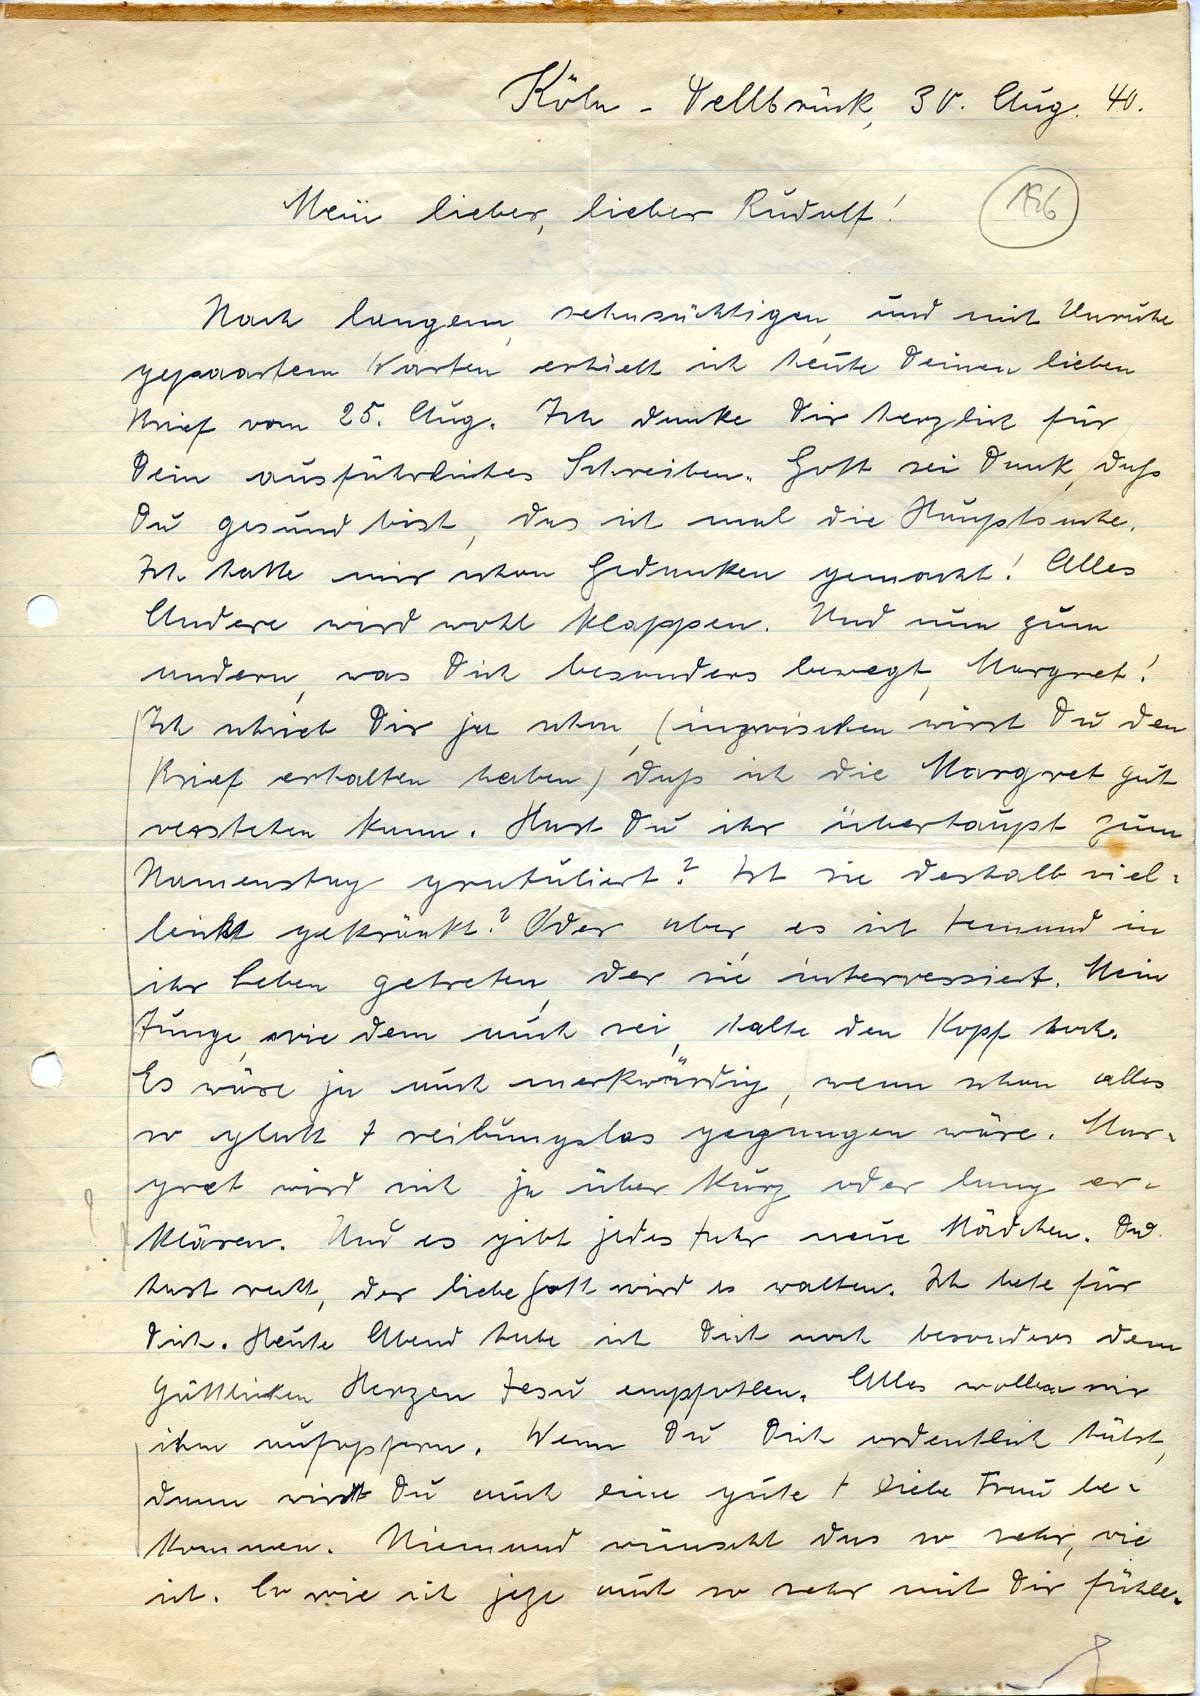 Köln - Dellbrück, 30. Aug. 40.
Mein lieber, lieber Rudolf!
186
Nach langem, sehnsüchtigen, und mit Unruhe
gepaartem Warten erhielt ich heute Deinen lieben
Brief vom 25. Aug. Ich danke Dir herzlich für
Dein ausführliches Schreiben. Gott sei Dank, daß
Du gesund bist, das ist mal die Hauptsache.
Ich hatte mir schon Gedanken gemacht! Alles
Andere wird wohl klappen. Und nun zum
andern, was Dich besonders bewegt, Margret!
Ich schrieb Dir ja schon, (inzwischen wirst Du den
Brief erhalten haben) daß ich die Margret gut
verstehen kann. Hast Du ihr überhaupt zum
Namenstag gratuliert? Ist sie deshalb viel-
leicht gekränkt? Oder aber, es ist Jemand in
ihr Leben getreten, der sie interressiert. Mein
Junge, wie dem auch sei, halte den Kopf hoch.
Es wäre ja auch merkwürdig, wenn schon alles
so glatt + reibungslos gegangen wäre. Mar-
gret wird sich ja über kurz oder lang er-
klären. Und es gibt jedes Jahr neue Mädchen. Du
hast recht, der liebe Gott wird es walten. Ich bete für
Dich. Heute Abend habe ich Dich noch besonders dem
Göttlichen Herzen Jesu empfohlen. Alles wollen wir
ihm aufopfern. Wenn Du Dich ordentlich hälst,
dann wirst Du auch eine gute + liebe Frau be-
kommen. Niemand wünscht das so sehr, wie
ich. So wie ich jetzt auch so sehr mit Dir fühle.